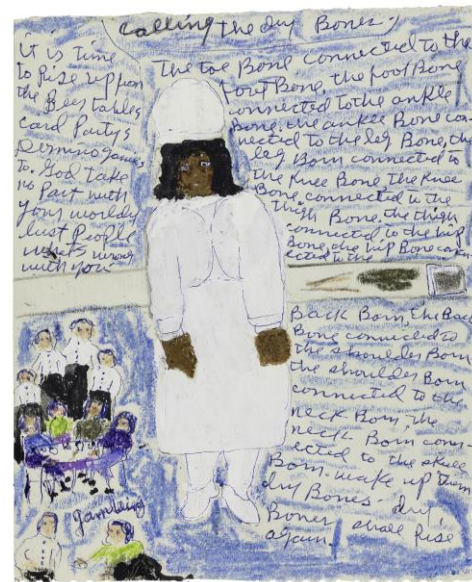 Calling the dry Bones.
it is time
to Rise up from
the Beer tables
Card Partys
Domino games,
to. God take
no Part with
your worldly
lust People
whats wrong
with you
The toe Bone connected to the
foot Bone, the foot Bone
connected to the ankle
Bone, the ankle Bone con-
nected to the leg Bone, the
leg Born connected to
the Knee Bone the Knee
Bone, connected to the
thigh Bone, the thigh
connected to the hip
Bone, the hip Bone conn
ected to the
Back Born, the Back
Bone connected to
the shoulder Born
the shoulder Born
connected to the
neck Born, the
neck Born conn
ected to the skull
Born. wake up them
dry Bones. dry
Bones shall Rise
again
gambling